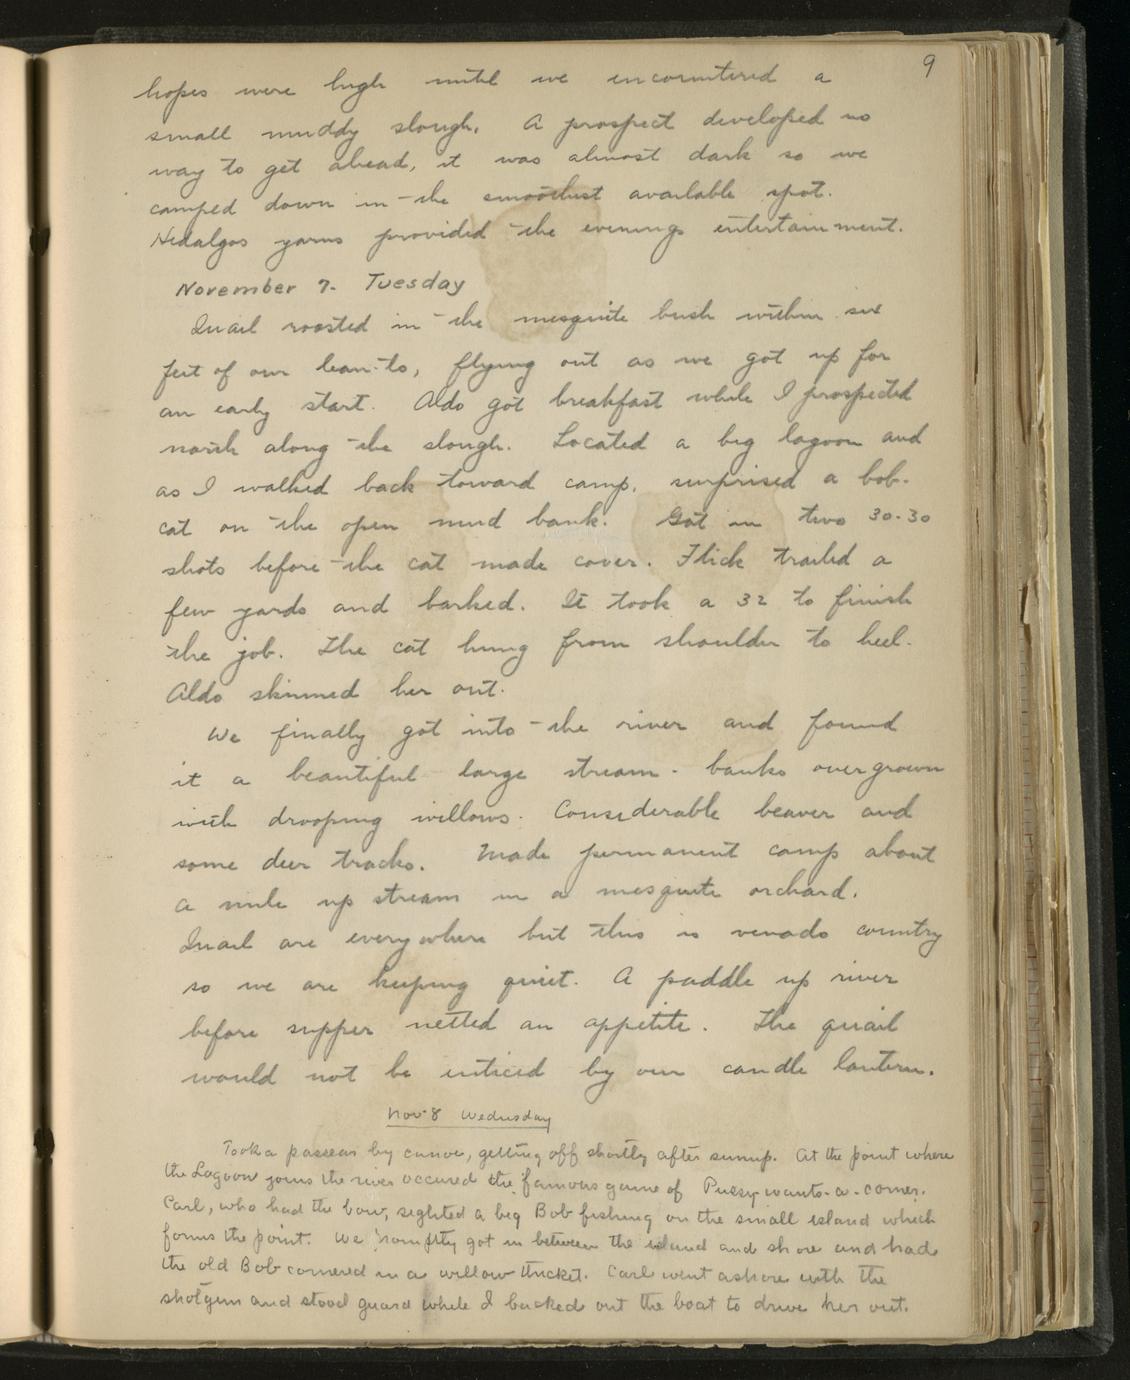 9
hopes were high until we encountered a
small muddy slough. A prospect developed no
way to get ahead, it was almost dark so we
camped down in the smoothest available spot.
Hidalgos yarns provided the evenings entertainment.
November 7. Tuesday
Quail roosted in the mesquite bush within six
feet of our lean-to, flying out as we got up for
an early start. Aldo got breakfast while I prospected
north along the slough. Located a big lagoon and
as I walked back toward camp, surprised a bob-
cat on the open mud bank. Got in two 30-30
shots before the cat made cover. Flick trailed a
few yards and barked. It took a 32 to finish
the job. The cat hung from shoulder to heel.
Aldo skinned her out.
We finally got into the river and found
it a beautiful large stream - banks overgrown
with drooping willows. Considerable beaver and
some deer tracks. Made permanent camp about
a mile up stream in a mesquite orchard.
Quail are everywhere but this is venado country
so we are keeping quiet. A paddle up river
before supper netted an appetite. The quail
would not be enticed by our candle lantern.
Nov 8 Wednesday
Took a pasear by canoe, getting off shortly after sunup. At the point where
the Lagoon joins the river occured the famous game of Pussy-wants-a-corner.
Carl, who had the bow, sighted a big Bob fishing on the small island which
forms the point. We promptly got in between the island and shore and had
the old Bob cornered in a willow thicket. Carl went ashore with the
shotgun and stood guard while I backed out the boat to drive her out.